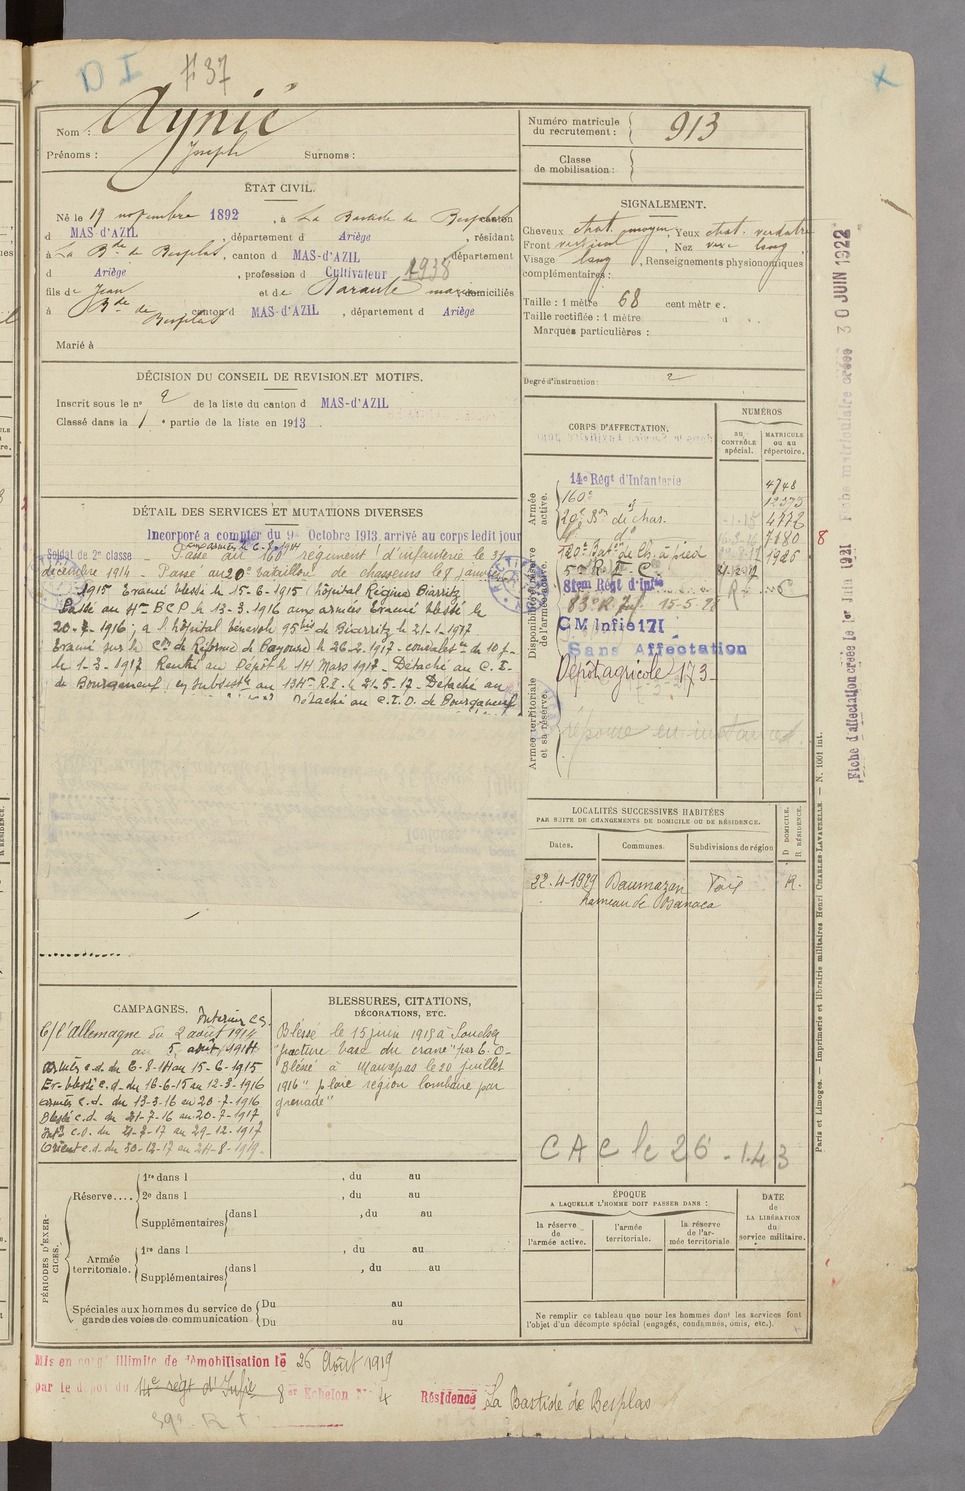 DI #37
Nom : Aynié
Prénoms : Joseph Surnoms :
ÉTAT CIVIL.
Né le 19 novembre 1892, à La Bastide de Besplas canton
d MAS-d'AZIL, département d Ariège, résidant
à La Bde de Besplas, canton d MAS-d'AZIL département
d Ariège, profession d Cultivateur 1938
fils de Jean et de domiciliés
à Bde de Besplas canton d MAS-d'AZIL, département d Ariège
Marié à
DÉCISION DU CONSEIL DE REVISION ET MOTIFS.
Inscrit sous le n° 2 de la liste du canton d MAS-d'AZIL
Classé dans la 1 e partie de la liste en 1913
DÉTAIL DES SERVICES ET MUTATIONS DIVERSES
Incorporé à compter du 9 Octobre 1913, arrivé au corps ledit jour
aux armées le 6-8-1914
Soldat de 2e classe Passé au 160e régiment d'infanterie le 31
décembre 1914 - Passé au 20e bataillon de chasseurs le 8 janvier
1915 Evacué blessé le 15-6-1915 (hôpital Régina Biarritz
Passé au 4me B C P le 13-3-1916 aux armées Evacué blessé le
20-7-1916; à l'hôpital bénévole 95bis de Biarritz le 21-1-1917
Evacué sur le Cre de Réforme de Bayonne le 26-2-1917 - convalesce de 10 j.
le 1-3-1917 Rentré au Dépôt le 14 Mars 1917 - Détaché au C. I.
de Bourganeuf en subsistce au 134me R.I. le 21-5-17 - Détaché au
Détaché au C.I.D. de Bourganeuf
CAMPAGNES.
Intérieur C.S.
C/ l'Allemagne du 2 août 1914
au 5 août 1914
armées c.d. du 6-8-14 au 15-6-1915
Ev. blessé c.d. du 16-6-15 au 12-3-1916
armées c.d. du 13-3-16 au 20-7-1916
Blessé c.d. du 21-7-16 au 20-7-1917
Intr c.d. du 21-7-17 au 29-12-1917
Orient c.d. du 30-12-17 au 24-8-1919
BLESSURES, CITATIONS,
DÉCORATIONS, ETC.
Blessé le 15 juin 1915 à Souchez
"fracture base du crane" par E. O.
Blessé à Maurepas le 20 juillet
1916 "plaie région lombaire par
grenade"
PÉRIODES D'EXERCICES.
Réserve....
1re dans l , du au
2e dans l , du au
Supplémentaires dans l , du au
Armée territoriale.
1re dans l , du au
Supplémentaires dans l , du au
Spéciales aux hommes du service de garde des voies de communication.
Du au
Du au
Mis en congé illimité de démobilisation le 26 Août 1919
par le dépôt du 14e régt d'Infie 8er Echelon N° 4 Résidence La Bastide de Besplas
Numéro matricule
du recrutement : 913
Classe
de mobilisation :
SIGNALEMENT.
Cheveux chat. moyen, Yeux chat. verdatre
Front vertical, Nez long
Visage long, Renseignements physionomiques
complémentaires :
Taille : 1 mètre 68 centimètre.
Taille rectifiée : 1 mètre
Marques particulières :
Degré d'instruction : 2
CORPS D'AFFECTATION.
NUMÉROS
au CONTRÔLE spécial.
MATRICULE ou au répertoire.
Armée active.
14e Régt d'Infanterie 4748
160e
20e Bon de chas.
4e do 7180
Disponibilité et réserve de l'armée active.
120e Bat. de Ch. à pied 1925
81em Régt d'Infie
83e R. Inf. 15-5-
CM Infie 171
Sans Affectation
Armée territoriale et sa réserve.
Dépôt agricole 173
réponse en instance
8
LOCALITÉS SUCCESSIVES HABITÉES
PAR SUITE DE CHANGEMENTS DE DOMICILE OU DE RÉSIDENCE.
Dates. Communes. Subdivisions de région D. DOMICILE. R. RÉSIDENCE.
22-4-1929 Daumazan Foix R.
hameau de Banaca
CAC le 26-1-43
ÉPOQUE
A LAQUELLE L'HOMME DOIT PASSER DANS :
la réserve de l'armée active.
l'armée territoriale.
la réserve de l'armée territoriale
DATE de LA LIBÉRATION du service militaire.
Ne remplir ce tableau que pour les hommes dont les services font
l'objet d'un décompte spécial (engagés, condamnés, omis, etc.).
Paris et Limoges. — Imprimerie et librairie militaires Henri CHARLES-LAVAUZELLE. — N. 1001 int.
Fiche d'affectation créée le 1er Juin 1921 Fiche matriculaire créée 30 JUIN 1922